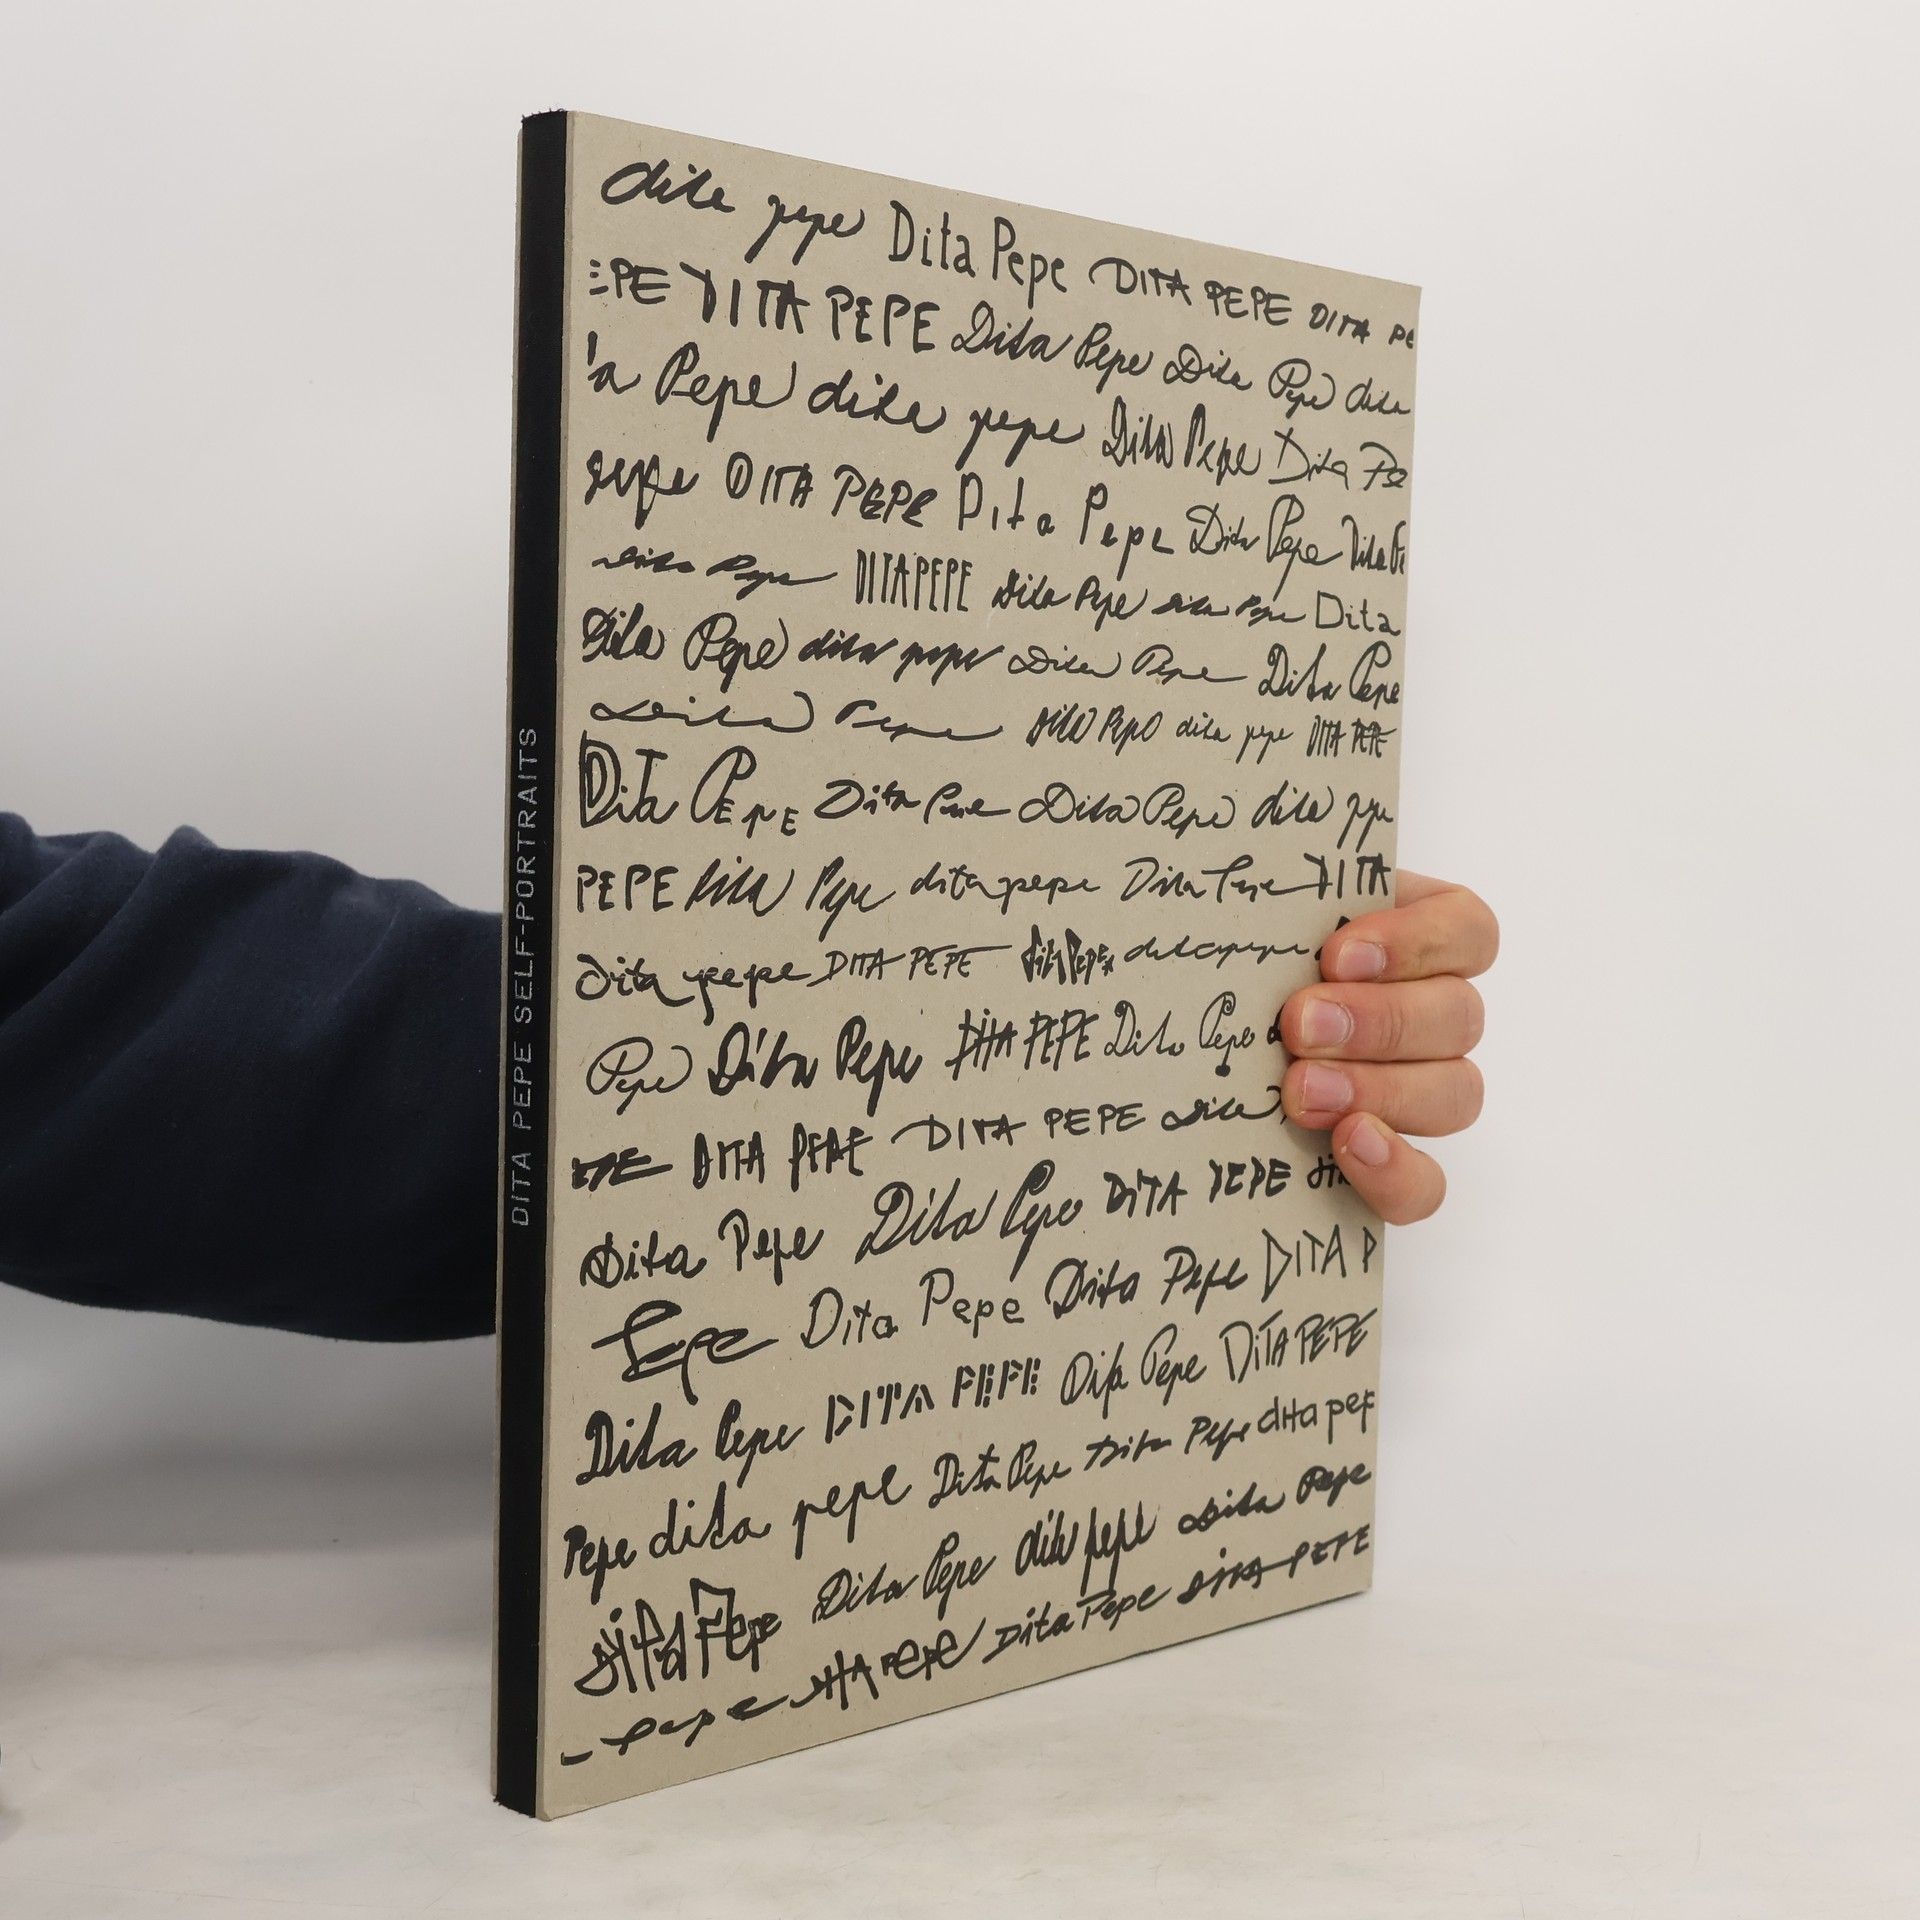 DITA PEPE SELF-PORTRAITS
dita pepe Dita Pepe DITA PEPE DITA PE
EPE DITA PEPE Dita Pepe Dita Pepe dita
a Pepe dita pepe Dita Pepe Dita Pe
pepe DITA PEPE Dita Pepe Dita Pepe Dita Pe
Dita Pepe DITA PEPE Dita Pepe dita Pepe Dita
Dita Pepe dita pepe Dita Pepe Dita Pepe
Dita Pepe Dita Pepe dita pepe DITA PEPE
DiTa PEpE Dita Pepe Dita Pepe dita pepe
PEPE Dita Pepe dita pepe Dita Pepe DITA
Dita pepe DITA PEPE dita Pepe dita pepe
Pepe Dita Pepe DITA PEPE Dita Pepe
EPE DITA PEPE DITA PEPE Dita
Dita Pepe Dita Pepe DITA PEPE dit
Pepe Dita Pepe Dita Pepe DITA P
Dita Pepe DITA PEPE Dita Pepe DiTA PEPE
Pepe dita pepe Dita Pepe Dita Pepe dita pep
dita Pepe Dita Pepe dita pepe Dita Pepe
pepe DITA PEPE Dita Pepe DITA PEPE